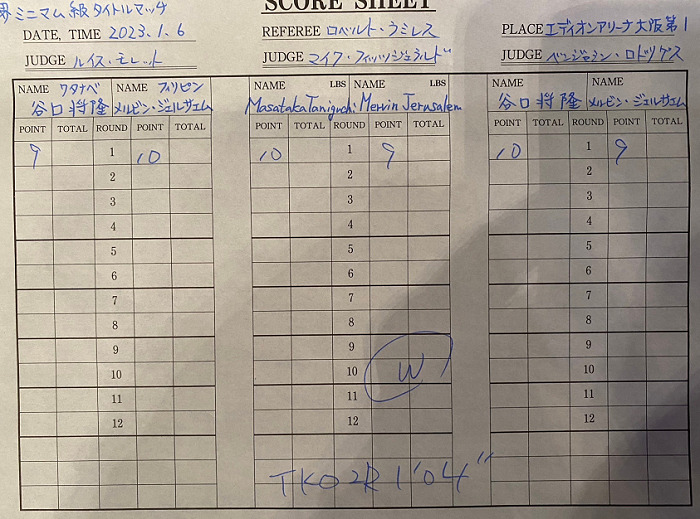 界ミニマム級タイトルマッチ
SCORE SHEET
DATE, TIME 2023.1.6 REFEREE ロベルト・ラミレス PLACE エディオンアリーナ大阪第1
JUDGE ルイス・モレット JUDGE マイク・フィッツジェラルド JUDGE ベンジャミン・ロドリゲス
NAME ワタナベ NAME フィリピン NAME LBS NAME LBS NAME NAME
谷口将隆 メルビン・ジェルサエム Masataka Taniguchi Mervin Jerusalem 谷口将隆 メルビン・ジェルサエム
POINT TOTAL ROUND POINT TOTAL POINT TOTAL ROUND POINT TOTAL POINT TOTAL ROUND POINT TOTAL
9 1 10 10 1 9 10 1 9
2 2 2
3 3 3
4 4 4
5 5 5
6 6 6
7 7 7
8 8 8
9 9 9
10 10 W 10
11 11 11
12 12 12
TKO 2R 1'04"